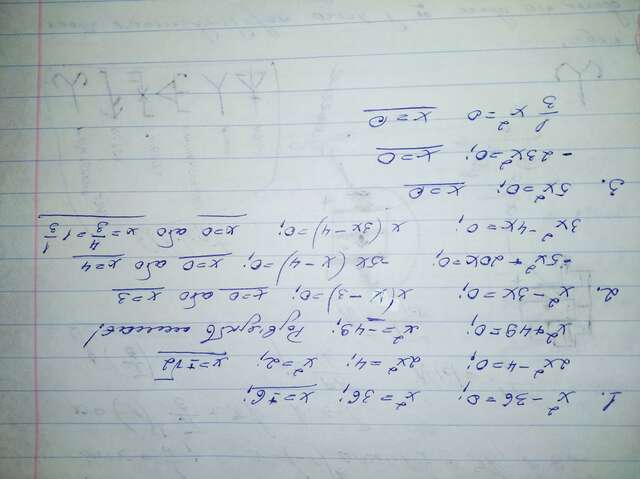 1. x²-36=0; x²=36; x=±6;
2x²-4=0; 2x²=4; x²=2; x=±√2
x²+49=0; x²=-49; Розв'язків немає!
2. x²-3x=0; x(x-3)=0; x=0 або x=3
-5x²+20x=0; -5x(x-4)=0; x=0 або x=4
3x²-4x=0; x(3x-4)=0; x=0 або x=4/3=1 1/3
3. 5x²=0; x=0
-23x²=0; x=0
1/3 x²=0 x=0